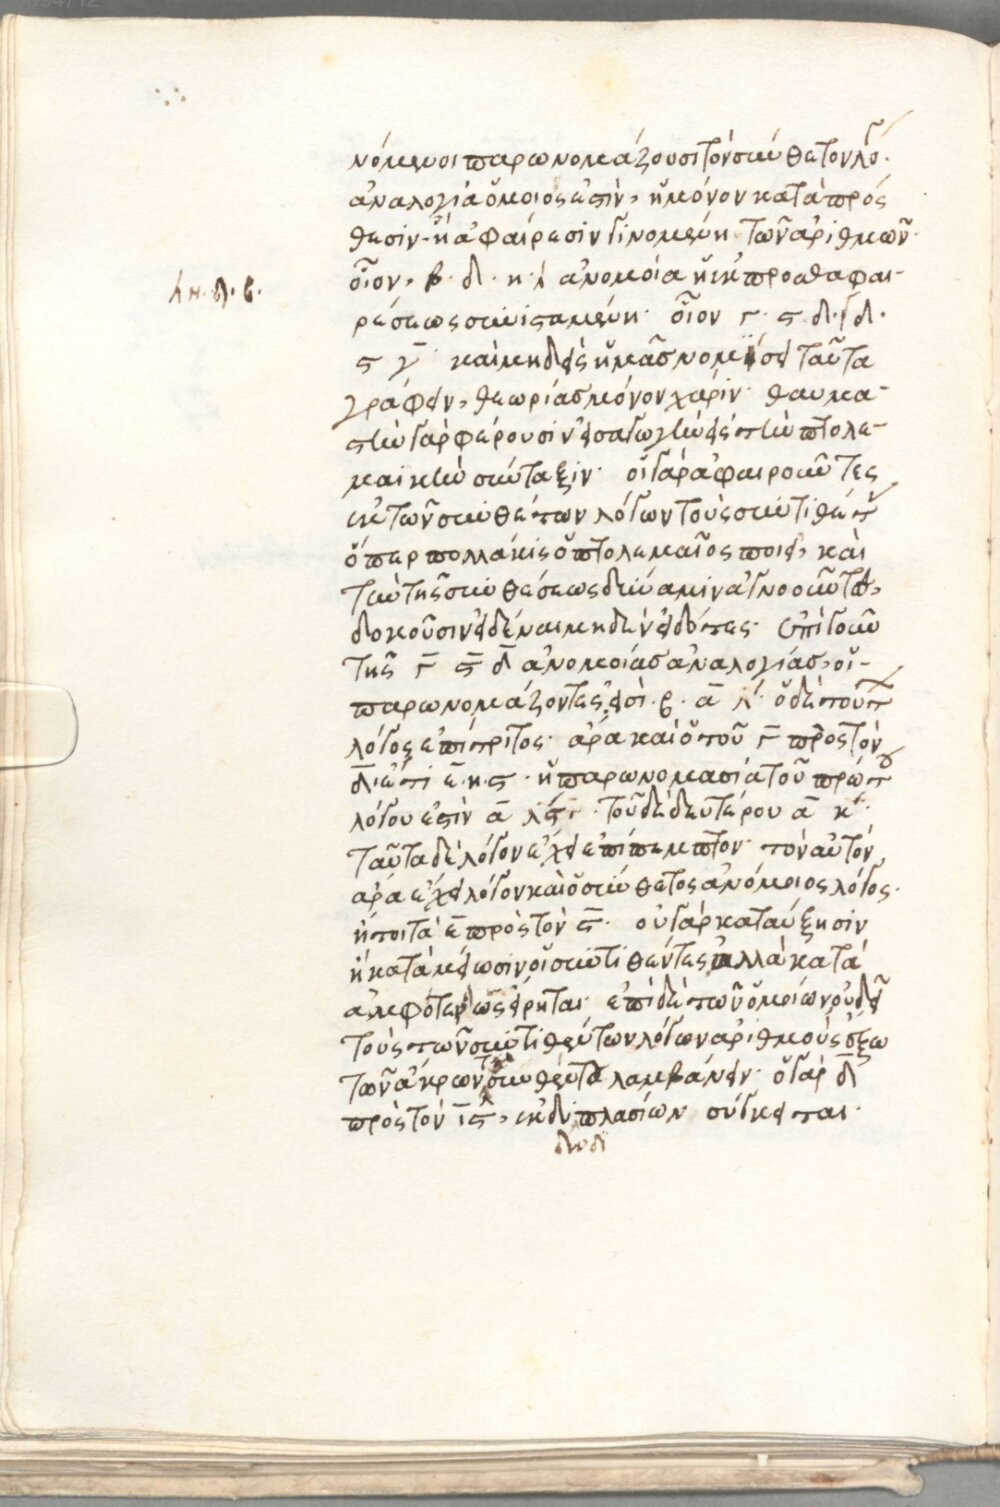 νόμενοι παρωνομάζουσι τὸν σύνθετον λό.
ἀναλογία ὅμοιος ἐστὶν, ἡ μόνον κατὰ πρόσ
θεσιν. ἢ ἀφαίρεσιν γινομένη τῶν ἀριθμῶν.
οἷον, β. δ. η. ἀνομοία ἡ ἐκ προσθαφαι-
η. δ. β.
ρέσεως συνισταμένη. οἷον γ. ς. δ. δ.
ς γ̅ καὶ μηδεὶς ἡμᾶς νομίσει ταῦτα
γράφειν, θεωρίας μόνον χάριν. θαυμα-
στὴν γὰρ φέρουσιν εἰσαγωγὴν εἰς τὴν πτολε-
μαϊκὴν σύνταξιν. οἱ γὰρ ἀφαιροῦντες
ἐκ τῶν συνθέτων λόγων τοὺς συντιθέντ
ὅπερ πολλάκις ὁ πτολεμαῖος ποιεῖ, καὶ
τὴν τῆς συνθέσεως δύναμιν ἀγνοοῦντες,
δοκοῦσιν εἰδέναι μηδὲν εἰδότες. ἐπὶ γοῦν
τῆς γ̅ ς̅ δ̅ ἀνομοίας ἀναλογίας, οἱ
παρωνομάζοντες α̅ ὁ δὲ τούτ
λόγος ἐπίτριτος. ἄρα καὶ ὁ τοῦ γ̅ πρὸς τὸν
δ̅ ἡ παρωνομασία τοῦ πρώτ
λόγου ἐστὶν α̅ τοῦ δὲ δευτέρου α̅ κ.
ταῦτα δὲ λόγον ἔχει ἐπίπεμπτον. τὸν αὐτὸν
ἄρα ἔχει λόγον καὶ ὁ σύνθετος ἀνόμοιος λόγος.
ἤτοι τὰ ε̅ πρὸς τὸν ς̅. οὐ γὰρ κατ αὔξησιν
ἢ κατὰ μείωσιν οἱ συντιθέντες ἀλλὰ κατὰ
ἀμφότερα ὡς εἴρηται. ἐπὶ δὲ τῶν ὁμοίων οὐ δεῖ
τοὺς τῶν συντιθέντων λόγων ἀριθμοὺς ἔξω
τῶν ἄκρων συνθέντα λαμβάνειν. ὁ γὰρ δ̅
πρὸς τὸν ι̅ς̅, ἐκ διπλασίων σύγκειται.